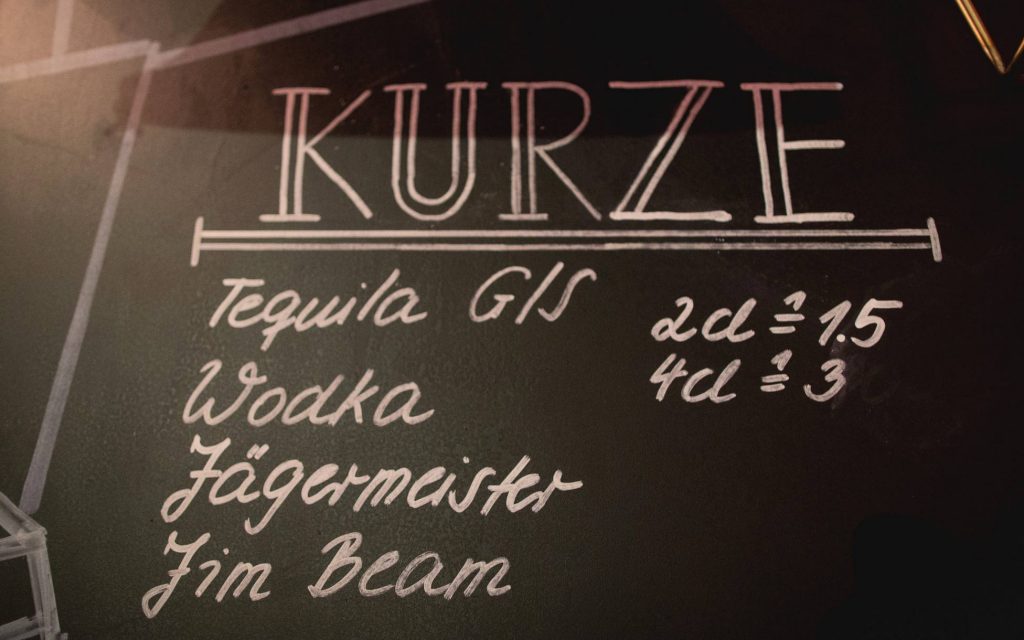 KURZE
Tequila G/S
2cl ≙ 1.5
4cl ≙ 3
Wodka
Jägermeister
Jim Beam